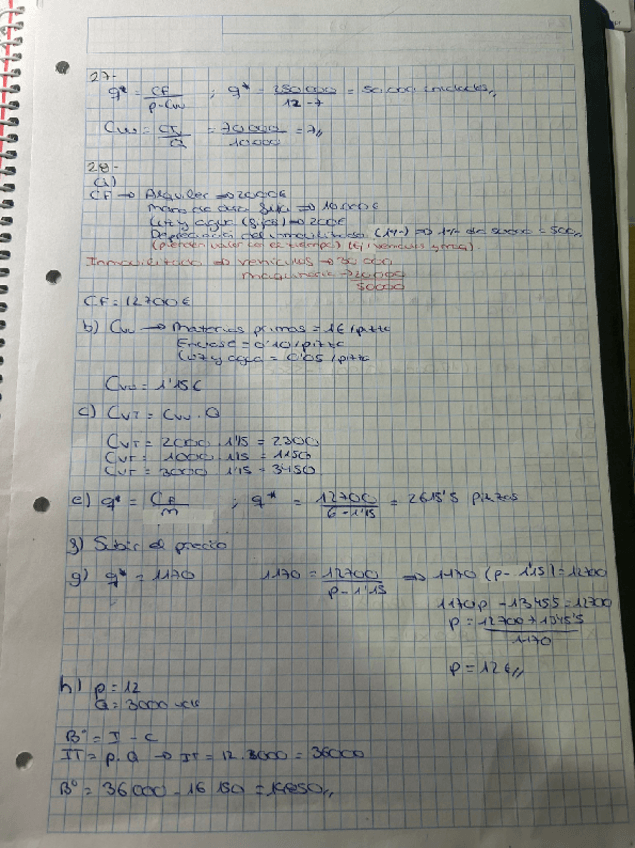 27-
q* = CF / p - Cvu ; q* = 250000 / 12 - 7 = 50.000 unidades,,
Cvu = CV / Q = 70000 / 10000 = 7,,
28-
a)
CF → Alquiler ⇒ 2000€
Mano de obra fija ⇒ 10.000€
Luz y agua (fijos) ⇒ 200€
Depreciación del inmovilizado (1%) ⇒ 1% de 50000 = 500,,
(pierden valor con el tiempo) (ej: vehículos y maq).
Inmovilizado ⇒ vehículos → 30 000
maquinaria → 20000
50000
CF = 12700€
b) Cvu → Materias primas = 1€/pizza
Envase = 0'10/pizza
Luz y agua = 0'05/pizza
Cvu = 1'15€
c) CVT = Cvu · Q
CVT = 2000 · 1'15 = 2300
CVT = 1000 · 1'15 = 1150
CVT = 3000 · 1'15 = 3450
e) q* = CF / m ; q* = 12700 / 6 - 1'15 = 2615'5 pizzas
f) Subir el precio
g) q* = 1170 1170 = 12700 / p - 1'15 ⇒ 1170 (p - 1'15) = 12700
1170p - 1345'5 = 12700
p = 12700 + 1345'5 / 1170
p = 12€,,
h) p = 12
Q = 3000 uds
Bº = I - C
IT = p · Q → IT = 12 · 3000 = 36000
Bº = 36000 - 16 150 = 19850,,